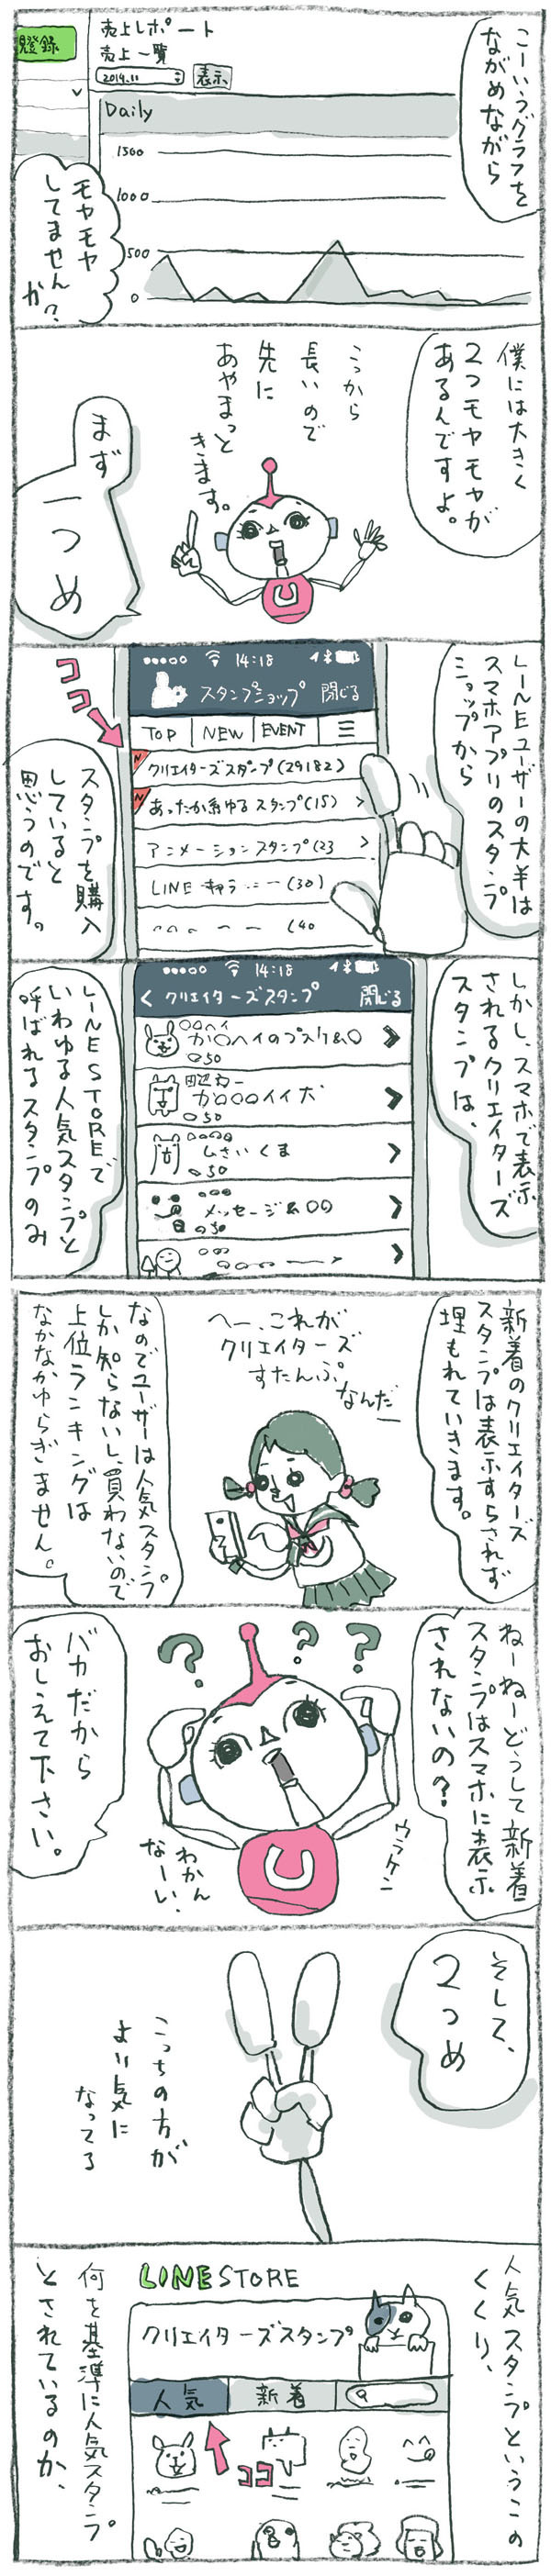 こーいうグラフを
ながめながら
売上レポート
売上一覧
2014.11
表示
登録
Daily
1500
1000
500
0
モヤモヤ
してません
か?
僕には大きく
2つモヤモヤが
あるんですよ。
こっから
長いので
先に
あやまっと
きます。
まず
一つめ
LINEユーザーの大半は
スマホアプリのスタンプ
ショップから
14:18
スタンプショップ 閉じる
TOP
NEW
EVENT
クリエイターズスタンプ(29182)
あったか系ゆるスタンプ(15)
アニメーションスタンプ(23
LINE キャラ
(30)
(40
ココ
スタンプを購入
していると
思うのです。
しかし、スマホで表示
されるクリエイターズ
スタンプは、
14:18
クリエイターズスタンプ 閉じる
〇〇ヘイ
カ〇ヘイのプスケ&〇
50
田辺
カ〇〇〇イイ
50
しさいくま
50
メッセージ&〇〇
50
LINE STOREで
いわゆる人気スタンプと
呼ばれるスタンプのみ
新着のクリエイターズ
スタンプは表示すらされず
埋もれていきます。
へー、これが
クリエイターズ
すたんぷ
なんだー
なのでユーザーは人気スタンプ
しか知らないし、買わないので
上位ランキングは
なかなかゆらぎません。
ねーねーどうして新着
スタンプはスマホに表示
されないの?
???
ウラケン
わかん
なーい。
バカだから
おしえて下さい。
そして、
2つめ
こっちの方が
より気に
なってる
人気スタンプというこの
くくり、
LINE STORE
クリエイターズスタンプ
人気
新着
ココ
何を基準に人気スタンプ
とされているのか、